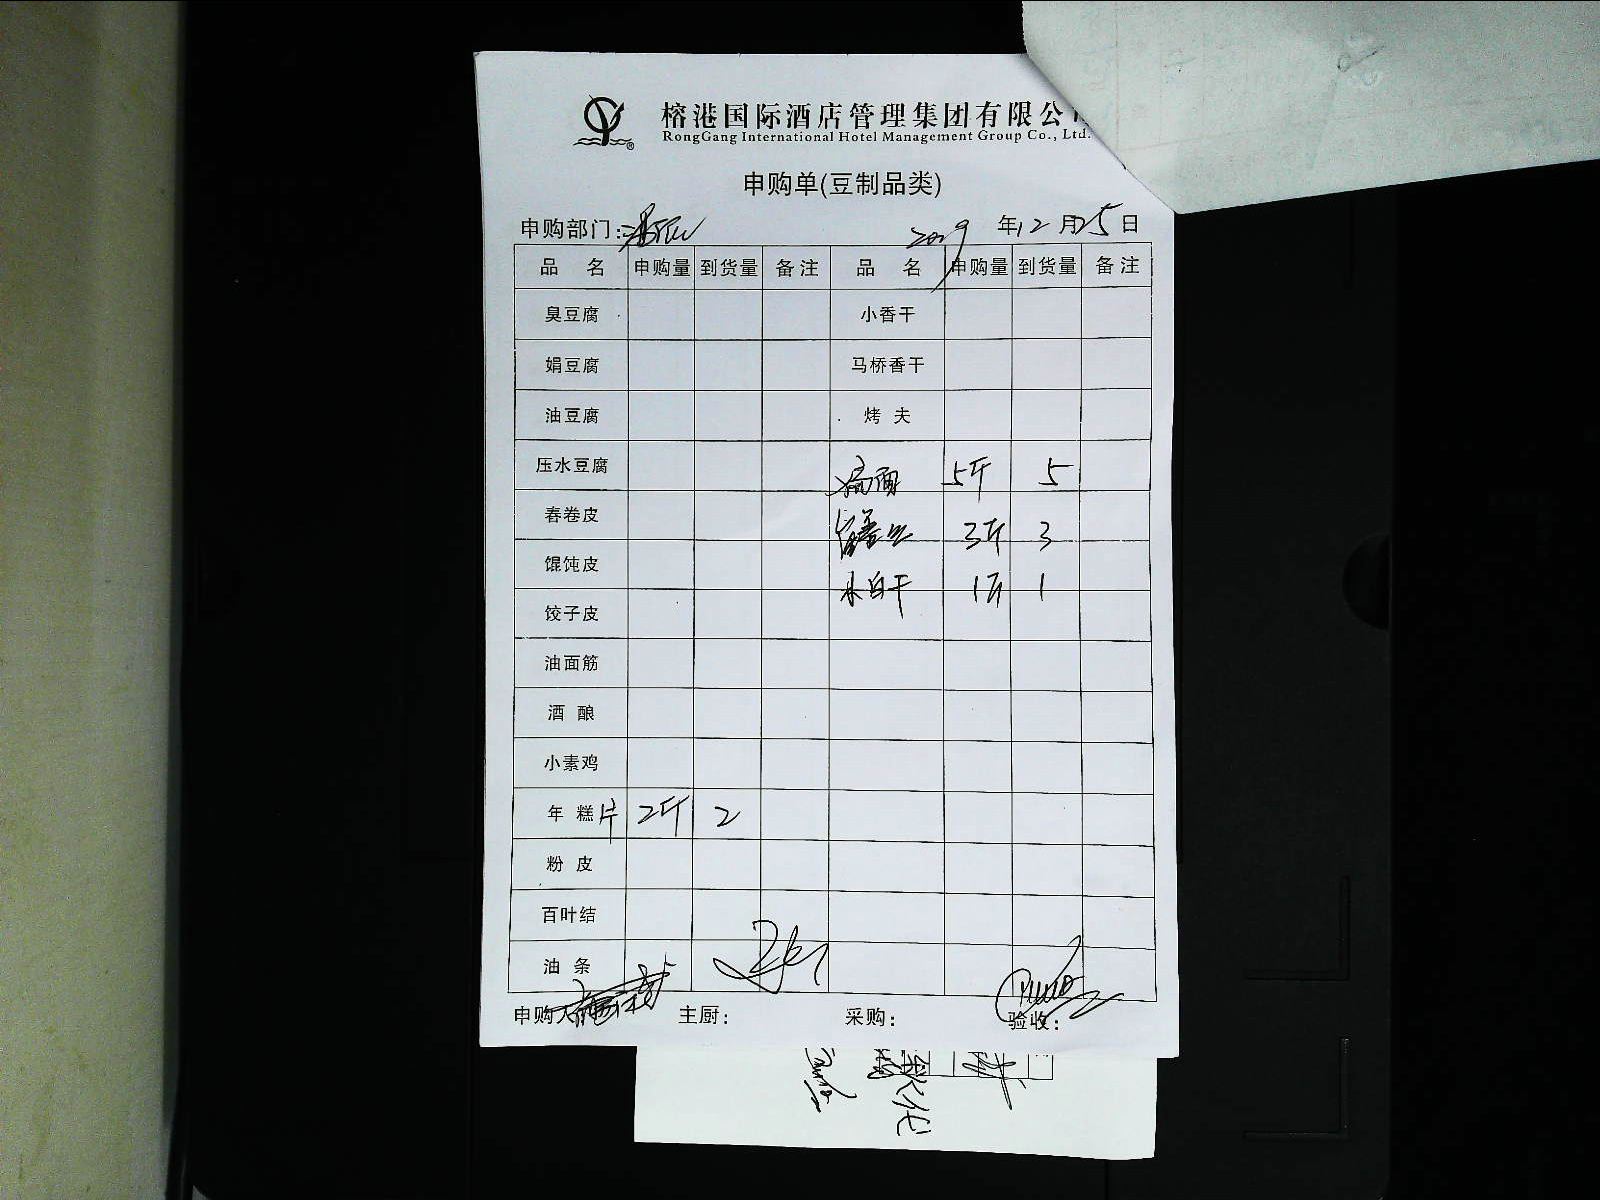 榕港国际酒店管理集团有限公
RongGang International Hotel Management Group Co., Ltd.
申购单(豆制品类)
申购部门: 2019 年12月25日
品 名 申购量 到货量 备注 品 名 申购量 到货量 备注
臭豆腐 小香干
娟豆腐 马桥香干
油豆腐 烤 夫
压水豆腐 5斤 5
春卷皮 3斤 3
馄饨皮 水白干 1斤 1
饺子皮
油面筋
酒 酿
小素鸡
年 糕片 2斤 2
粉 皮
百叶结
油 条
申购人 主厨: 采购: 验收: